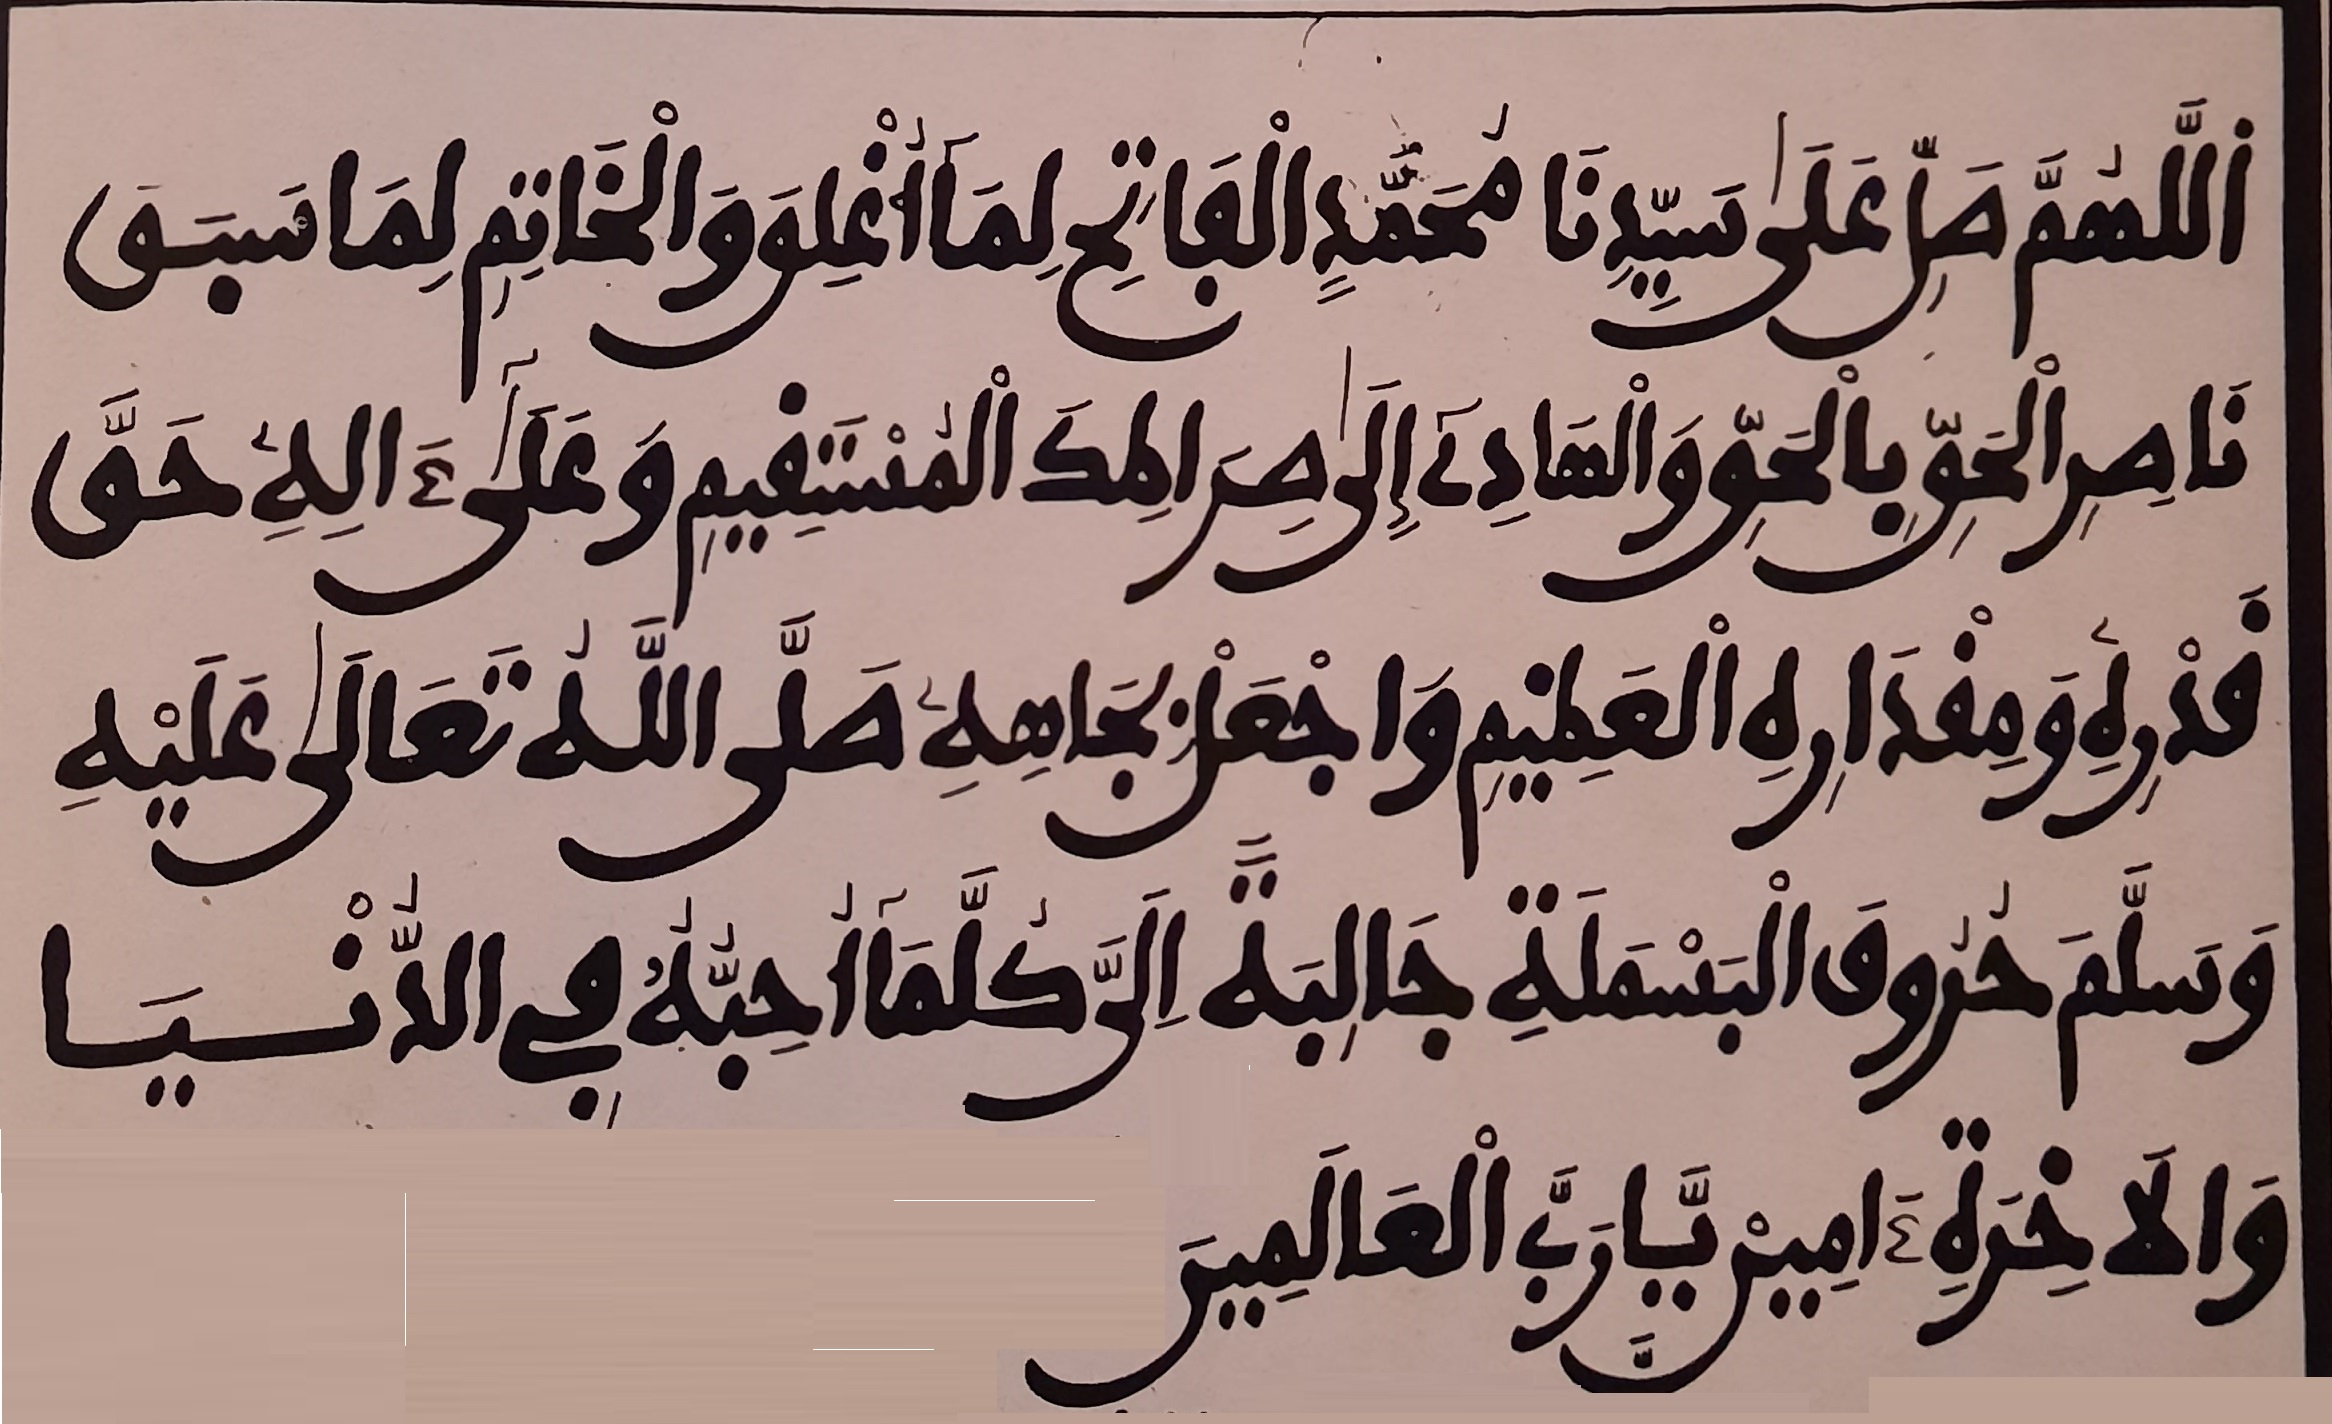 اَللّٰهُمَّ صَلِّ عَلَىٰ سَيِّدِنَا مُحَمَّدٍ الْفَاتِحِ لِمَآ أُغْلِقَ وَالْخَاتِمِ لِمَا سَبَقَ
نَاصِرِ الْحَقِّ بِالْحَقِّ وَالْهَادِےٓ إِلَىٰ صِرَاطِكَ الْمُسْتَقِيمِ وَعَلَىٰٓ ءَالِهِۦ حَقَّ
قَدْرِهِۦ وَمِقْدَارِهِ الْعَظِيمِ وَاجْعَلْ بِجَاهِهِۦ صَلَّى اللَّهُ تَعَالَىٰ عَلَيْهِ
وَسَلَّمَ حُرُوفَ الْبَسْمَلَةِ جَالِبَةً اِلَىَّ كُلَّمَآ أُحِبُّهُۥ فِے الدُّنْيَا
وَالَاخِرَةِ ءَامِينْ يَّا رَبَّ الْعَالَمِينَ